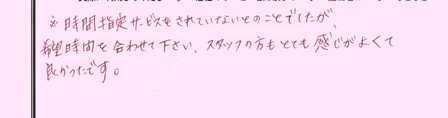 ※時間指定サービスをされていないとのことでしたが、
希望時間を合わせて下さい、スタッフの方もとても感じがよくて
良かったです。